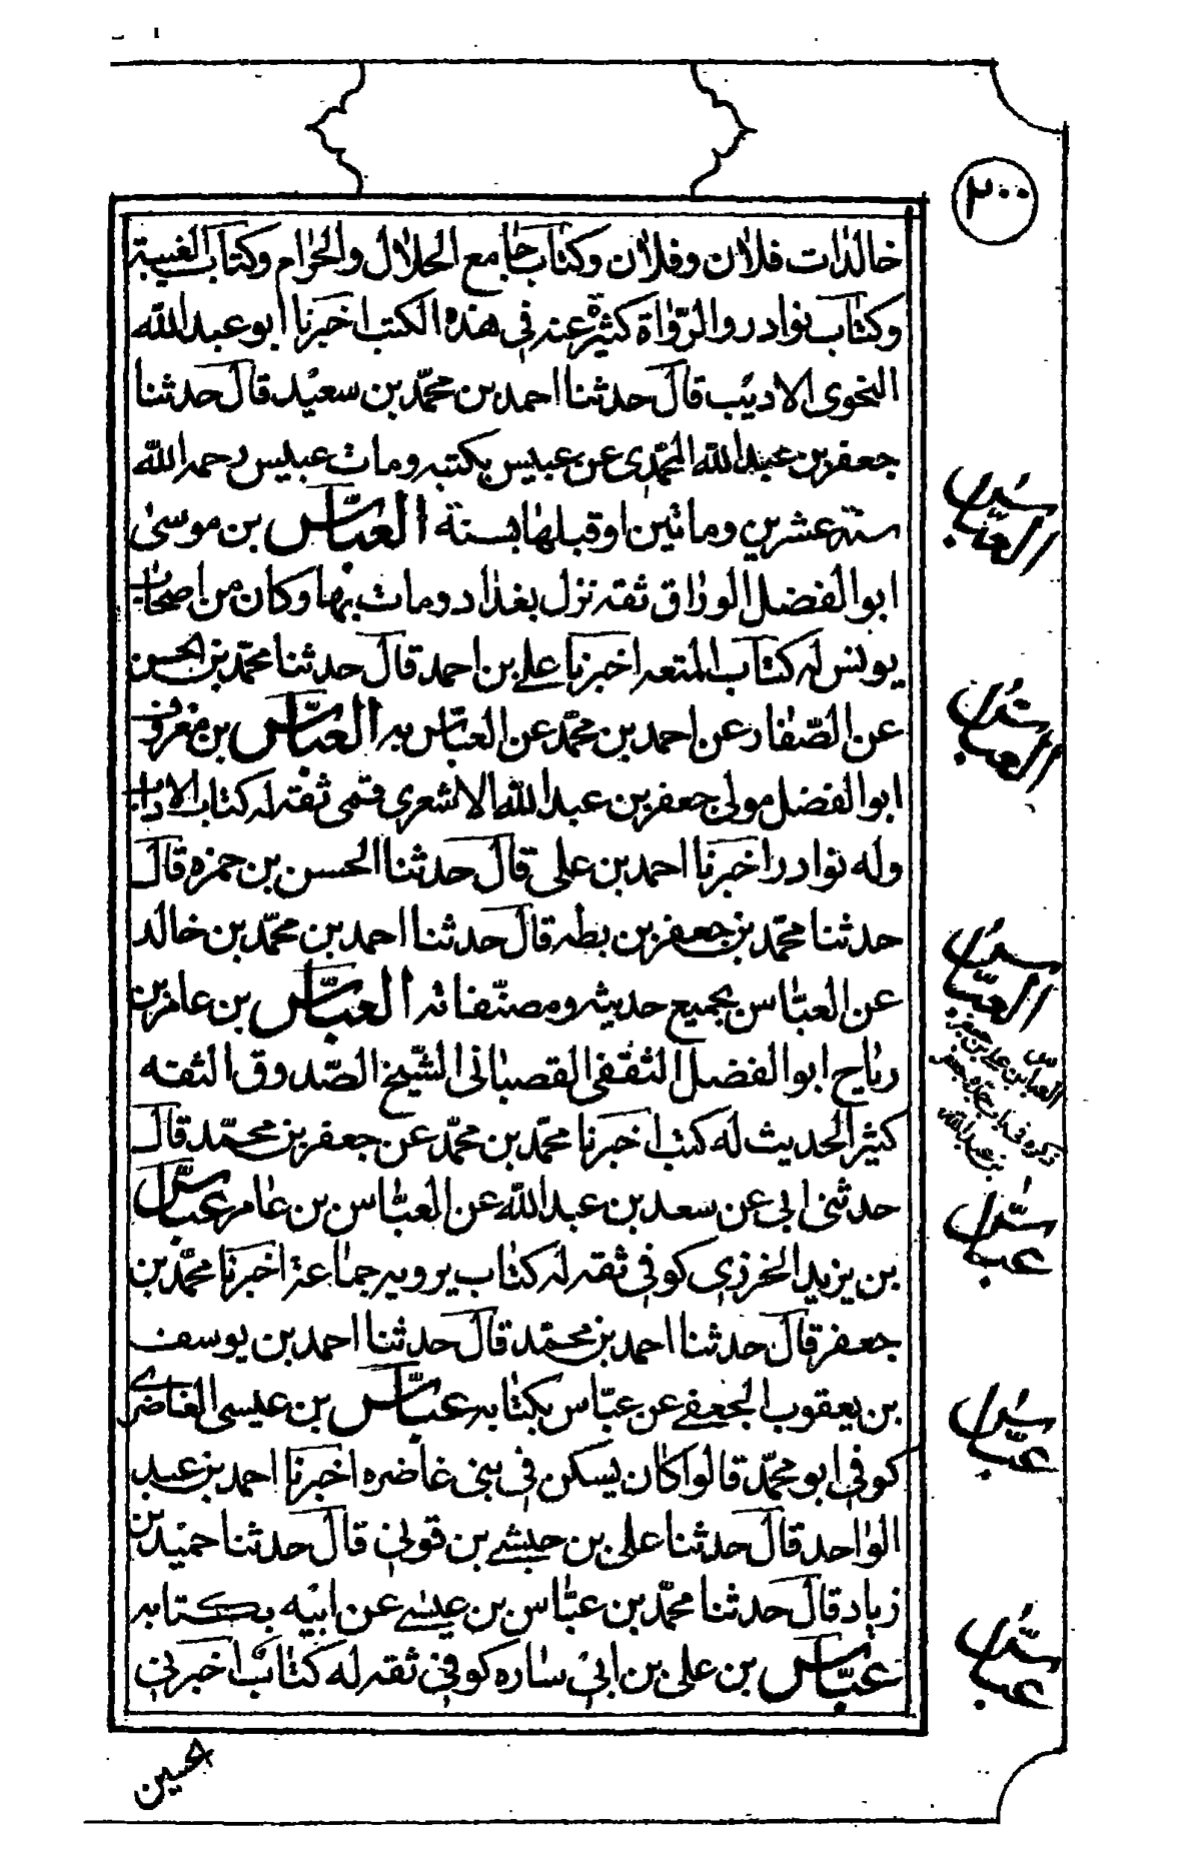 ٢٠٠
خالدات فلان وفلان وكتاب جامع الحلال والحرام وكتاب الغيبة
وكتاب نوادر والرواة كثيرة عنه في هذه الكتب اخبرنا ابو عبد الله
النحوى الاديب قال حدثنا احمد بن محمد بن سعيد قال حدثنا
جعفر بن عبد الله المحمدى عن عبيس بكتبه ومات عبيس رحمه الله
سنة عشرين وماتين او قبلها بسنة العباس بن موسى
ابو الفضل الوراق ثقه نزل بغداد ومات بها وكان من اصحاب
يونس له كتاب المتعه اخبرنا على بن احمد قال حدثنا محمد بن الحسن
عن الصفار عن احمد بن محمد عن العباس به العباس بن معروف
ابو الفضل مولى جعفر بن عبد الله الاشعرى قمى ثقه له كتاب الاداب
وله نوادر اخبرنا احمد بن على قال حدثنا الحسن بن حمزه قال
حدثنا محمد بن جعفر بن بطه قال حدثنا احمد بن محمد بن خالد
عن العباس بجميع حديثه ومصنفاته العباس بن عامر بن
رباح ابو الفضل الثقفى القصبانى الشيخ الصدوق الثقه
كثير الحديث له كتب اخبرنا محمد بن محمد عن جعفر بن محمد قال
حدثنى ابى عن سعد بن عبد الله عن العباس بن عامر عباس
بن يزيد الخرزى كوفى ثقه له كتاب يرويه جماعة اخبرنا محمد بن
جعفر قال حدثنا احمد بن محمد قال حدثنا احمد بن يوسف
بن يعقوب الجعفي عن عباس بكتابه عباس بن عيسى الغاضرى
كوفى ابو محمد قالوا كان يسكن في بنى غاضره اخبرنا احمد بن عبد
الواحد قال حدثنا على بن حبشي بن قونى قال حدثنا حميد بن
زياد قال حدثنا محمد بن عباس بن عيسي عن ابيه بكتابه
عباس بن على بن ابى ساره كوفى ثقه له كتاب اخبرنى
العباس
العباس
العباس
العباس بن على بن جعفر
ذكره فى
بن عبد الله
عباس
عباس
عباس
الحسين